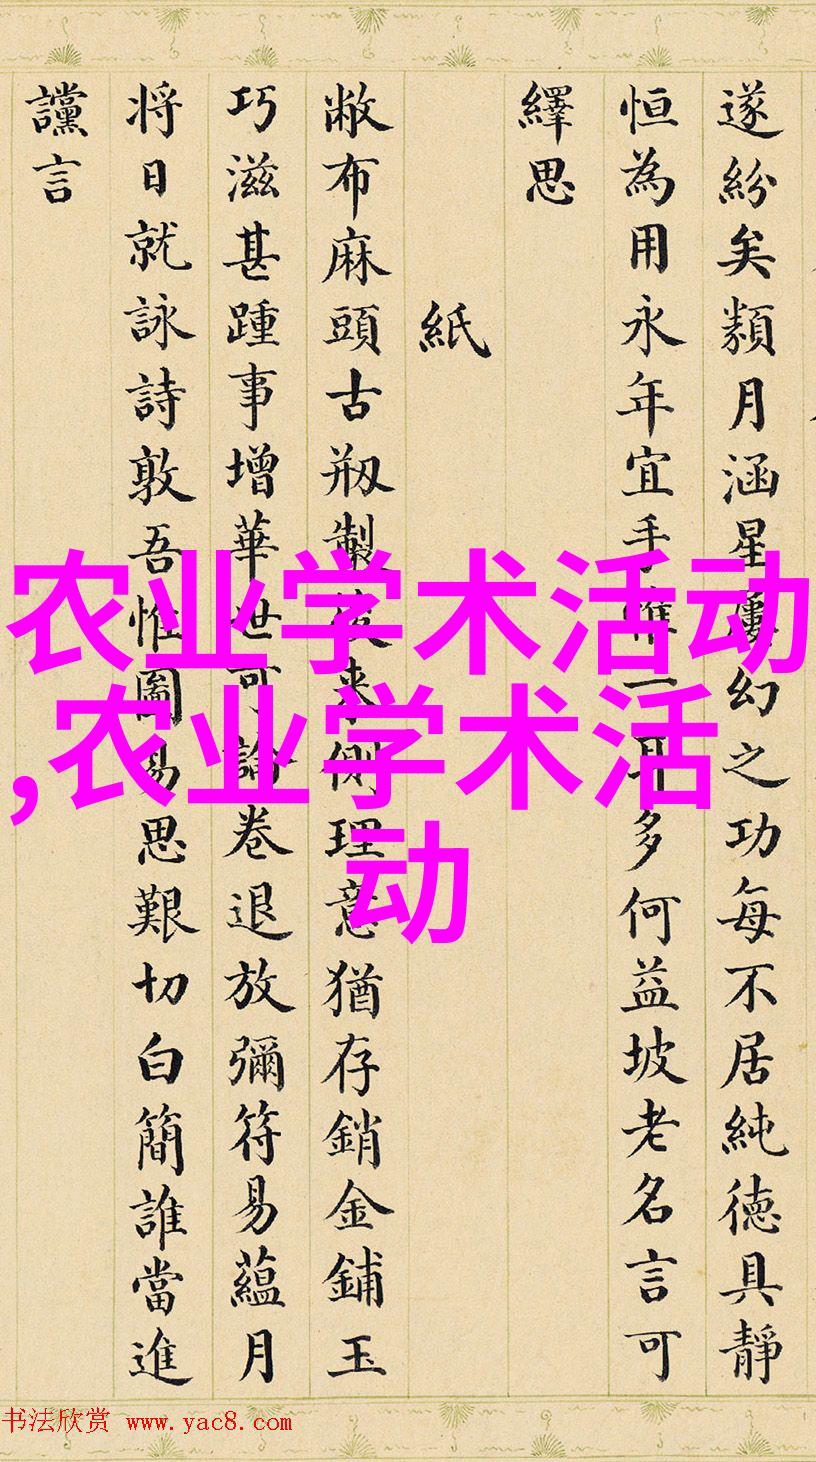 遂紛矣類月涵星屢幻之功每不居純德具靜
恒為用永年宜手惟一耳多何益坡老名言可
繹思
紙
敝布麻頭古剏製後來側理意猶存銷金鋪玉
巧滋甚踵事增華世可論卷退放彌符易蘊月
将日就詠詩敦吾惟圖易思艱切白簡誰當進
讜言
农业学术活动
,农业学术活
动
书法欣赏 www.yac8.com